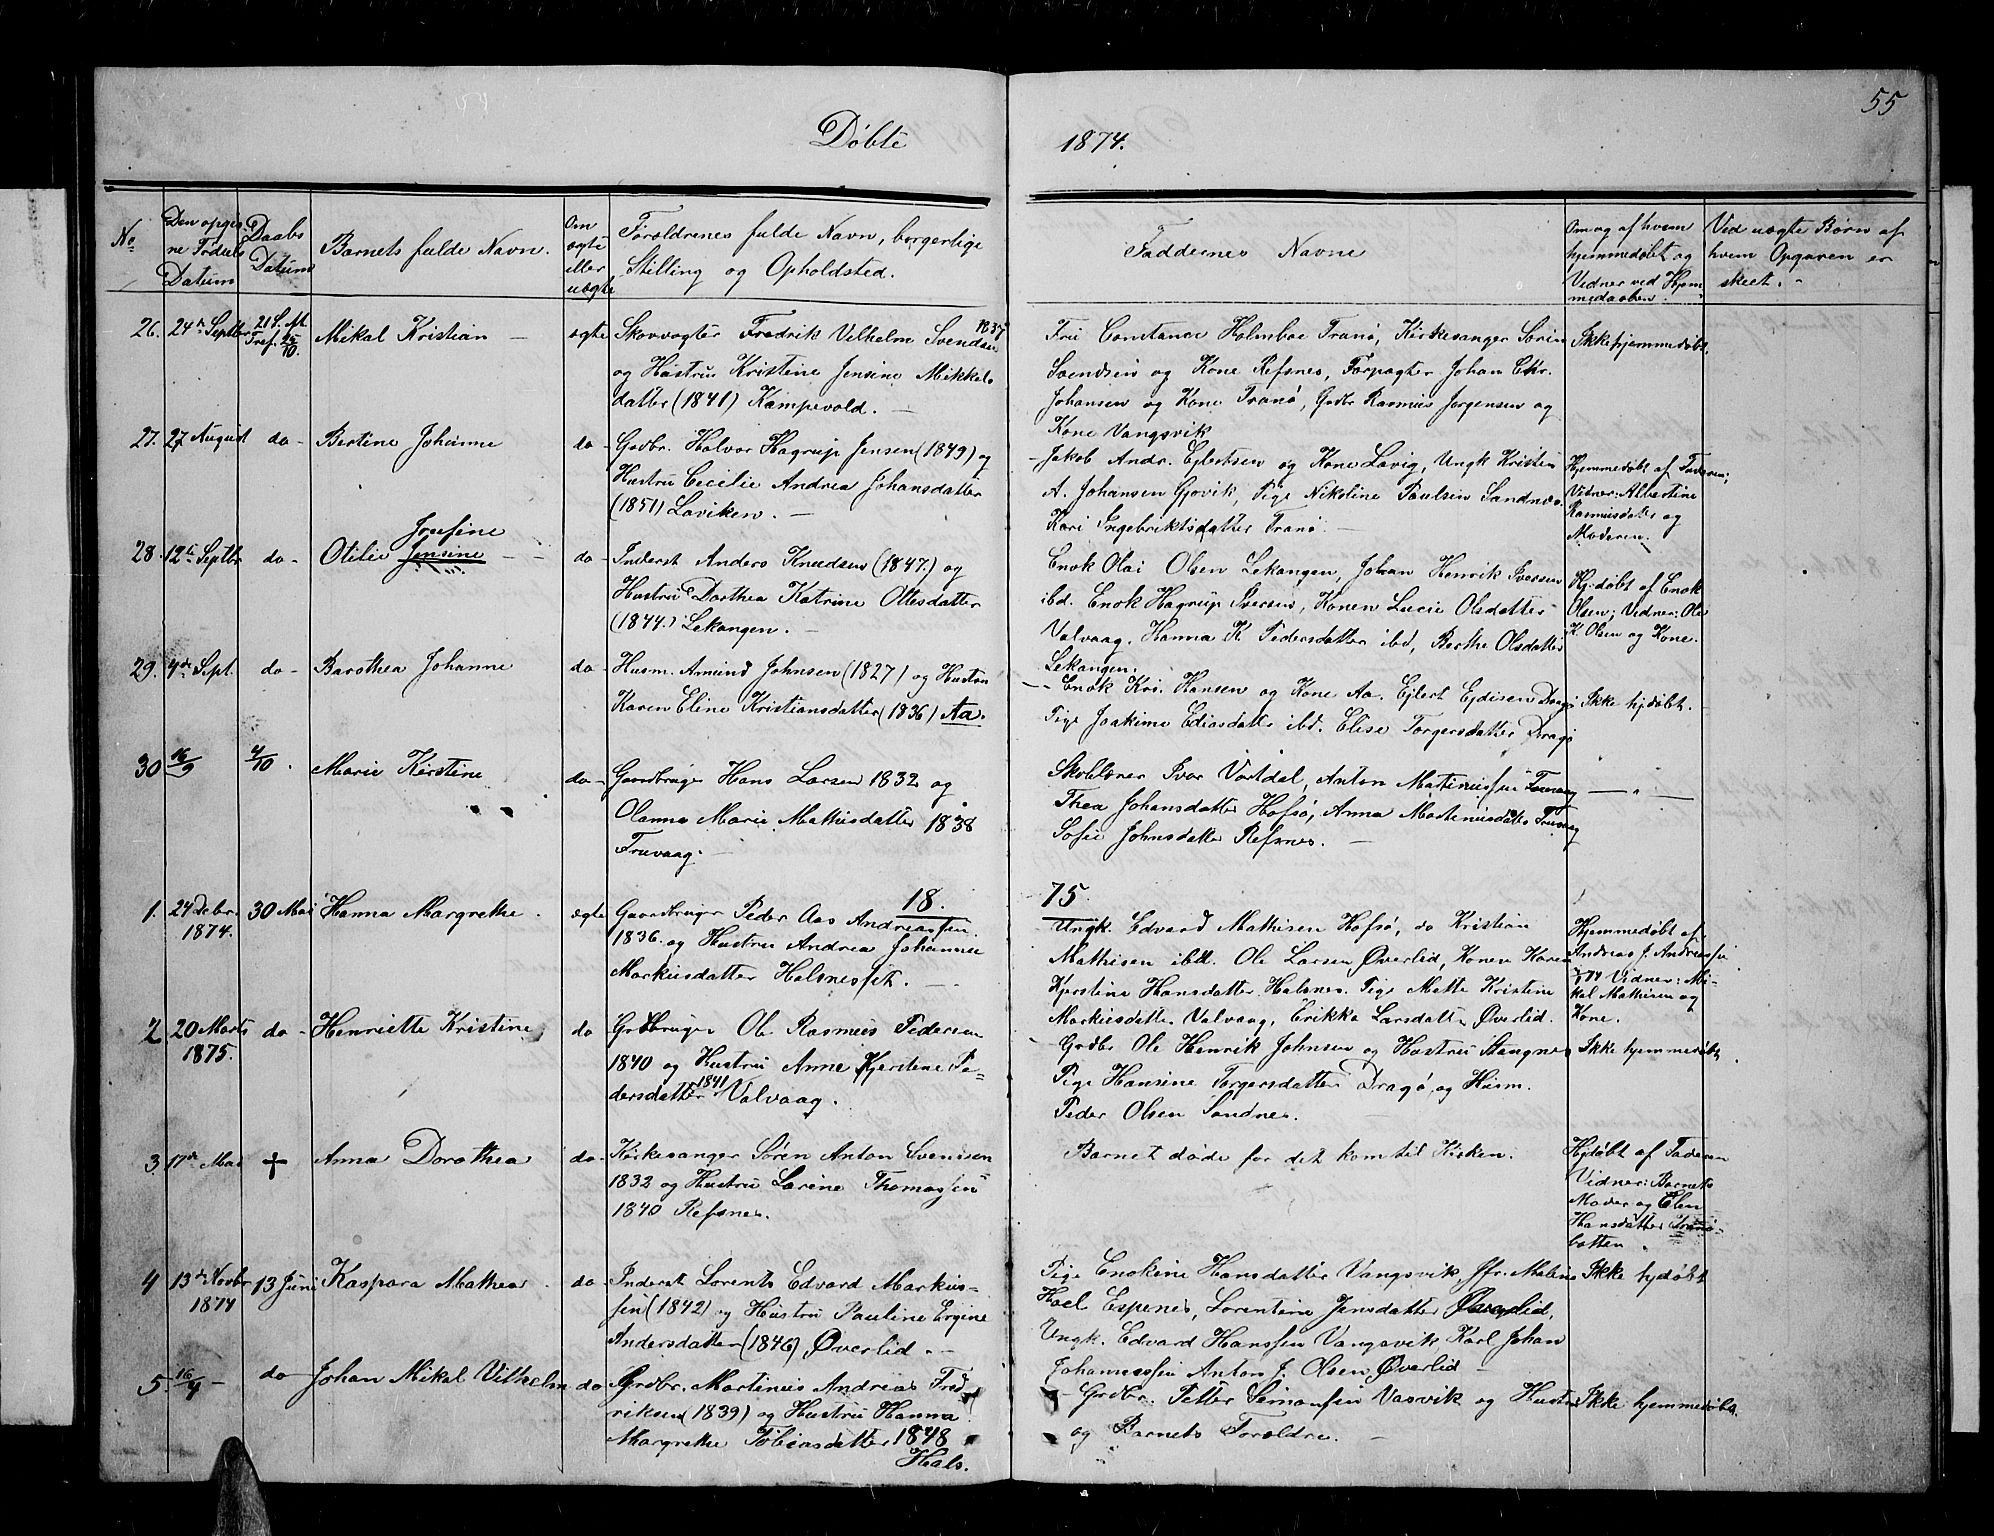 55
Døbte
1874.
No
Den opgivne Fødsels Datum
Daabs Datum
Barnets fulde Navn.
Om ægte eller uægte
Forældrenes fulde Navn, borgerlige Stilling og Opholdsted.
Faddernes Navne
Om og af hvem hjemmedøbt og Vidner ved Hjemmedaaben.
Ved uægte Børn af hvem Opgaven er skeet.
26. 24de Septbr 21 S. Tref. 25/10. Mikal Kristian ægte
Skovvogter Fredrik Vilhelm Svendsen 1837
og Hustru Kristine Jensine Mikkels
datter (1841) Kampevold.
Fru Constance Holmboe Tranø, Kirkesanger Søren
Svendsen og Kone Refsnes, Forpagter Johan Chr.
Johansen og Kone Tranø, Grdbr Rasmus Jørgensen og
Kone Vangsvik
Ikke hjemmedøbt.
27. 27 August do Bertine Johanne do
Grdbr. Halvor Hagrup Jensen (1849) og
Hustru Cecilie Andrea Johansdatter
(1851) Laviken.
Jakob Andr. Ejlertsen og Kone Lavig, Ungk Kristen
A. Johansen Gjøvik, Pige Nikoline Paulsen Sandnes
Kari Ingebriktsdatter Tranø
Hjemmedøbt af Faderen;
Vidner: Albertine
Rasmusdatter og
Moderen.
28. 12te Septbr do Otilie Jensine do
Josefine
Inderst Anders Knudsen (1847.) og
Hustru Dorthea Katrine Ottesdatter
(1844.) Lekangen.
Enok Olai Olsen Lekangen, Johan Henrik Iversen
ibd. Enok Hagrup Iversen, Konen Lucie Olsdatter
Valvaag, Hanna K Pedersdatter ibd, Berthe Olsdatter
Lekangen.
Hjdøbt af Enok
Olsen; Vidner: Ole
K. Olsen og Kone.
29. 4de Sept. do Barothea Johanne do
Husm. Amund Johnsen (1827) og Hustru
Karen Eline Kristiansdatter (1836) Aa.
Enok Kri. Hansen og Kone Aa. Ejlert Ejdisen Dragø
Pige Joakime Ediasdatter ibd. Elise Torgersdatter Dragø
Ikke hjdøbt.
30 16/9 4/10. Marie Kirstine do
Gaardbruger Hans Larsen 1832 og
Olanna Marie Mathisdatter 1838
Truvaag.
Skolelærer Ivar Vartdal, Anton Matinussen Truvaag
Thea Johansdatter Hofsø, Anna Martinusdatter Truvaag
Sofie Johnsdatter Refsnes.
18. 75
1. 24 Debr 1874. 30 Mai Hanna Margrethe ægte
Gaardbruger Peder Aas Andreassen
1836. og Hustru Andrea Johanne
Markusdatter Halsnesset.
Ungk. Edvard Mathisen Hofsø, do Kristian
Mathisen ibd. Ole Larsen Øverlid, Konen Karen
Kjerstine Hansdatter Halsnes. Pige Mette Kristine
Markusdatter Valvaag, Erikka Larsdatter Øverlid.
Hjemmedøbt af
Andreas J. Andreassen
Vidner: Mi-
kal Mathisen og
Kone.
2 20 Marts 1875. do Henriette Kristine do
Grdbruger Ole Rasmus Pedersen
1840 og Hustru Anne Kjerstine Pe-
dersdatter 1841 Valvaag.
Grdbr Ole Henrik Johnsen og Hustru Stangnes
Pige Hansine Torgersdatter Dragø, og Husm.
Peder Olsen Sandnes.
Ikke hjemmedøbt
3 17de Mai + Anna Dorothea do
Kirkesanger Søren Anton Svendsen
1832 og Hustru Lærine Thomassen
1840 Refsnes.
Barnet døde før det kom til Kirken.
Hjdøbt af Faderen
Vidner: Barnets
Moder og Elen
Hansdatter Tranø-
botten
4 13de Novbr 1874 13 Juni Kaspara Mathea do
Inderst Lorents Edvard Markus-
sen (1842) og Hustru Pauline Ergine
Andersdatter (1846) Øverlid.
Pige Enokine Hansdatter Vangsvik, Jfr. Malene
Hoel Espenes, Lorentine Jensdatter Øverlid,
Ungk. Edvard Hanssen Vangsvik, Karl Johan
Johannessen Anton J. Olsen Øverlid
Ikke hjdøbt
5 16/4 do Johan Mikal Vilhelm do
Grdbr. Martinus Andreas Fred
riksen (1839) og Hustru Hanna
Margrethe Tobiasdatter 1848
Hals.
Grdbr. Petter Simonsen Vasvik og Hustru
og Barnets Forældre.
Ikke hjemmedøbt.